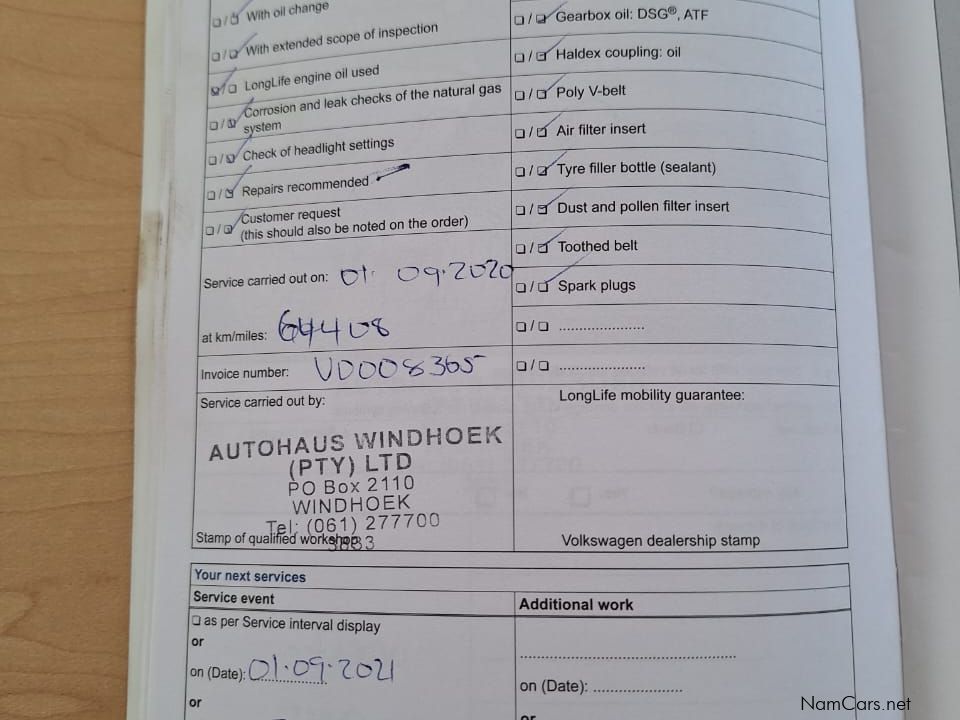 ☐/☑ With oil change
☐/☑ With extended scope of inspection
☑/☐ LongLife engine oil used
☐/☑ Corrosion and leak checks of the natural gas
system
☐/☑ Check of headlight settings
☐/☑ Repairs recommended
☐/☑ Customer request
(this should also be noted on the order)
Service carried out on: 01. 09.2020
at km/miles: 64408
Invoice number: VD008365
Service carried out by:
AUTOHAUS WINDHOEK
(PTY) LTD
PO Box 2110
WINDHOEK
Tel: (061) 277700
Stamp of qualified workshop
☐/☑ Gearbox oil: DSG®, ATF
☐/☑ Haldex coupling: oil
☐/☑ Poly V-belt
☐/☑ Air filter insert
☐/☑ Tyre filler bottle (sealant)
☐/☑ Dust and pollen filter insert
☐/☑ Toothed belt
☐/☑ Spark plugs
☐/☐ .....................
☐/☐ .....................
LongLife mobility guarantee:
Volkswagen dealership stamp
Your next services
Service event
☐ as per Service interval display
or
on (Date): 01.09.2021
or
Additional work
......................................................
on (Date): ......................
or
NamCars.net